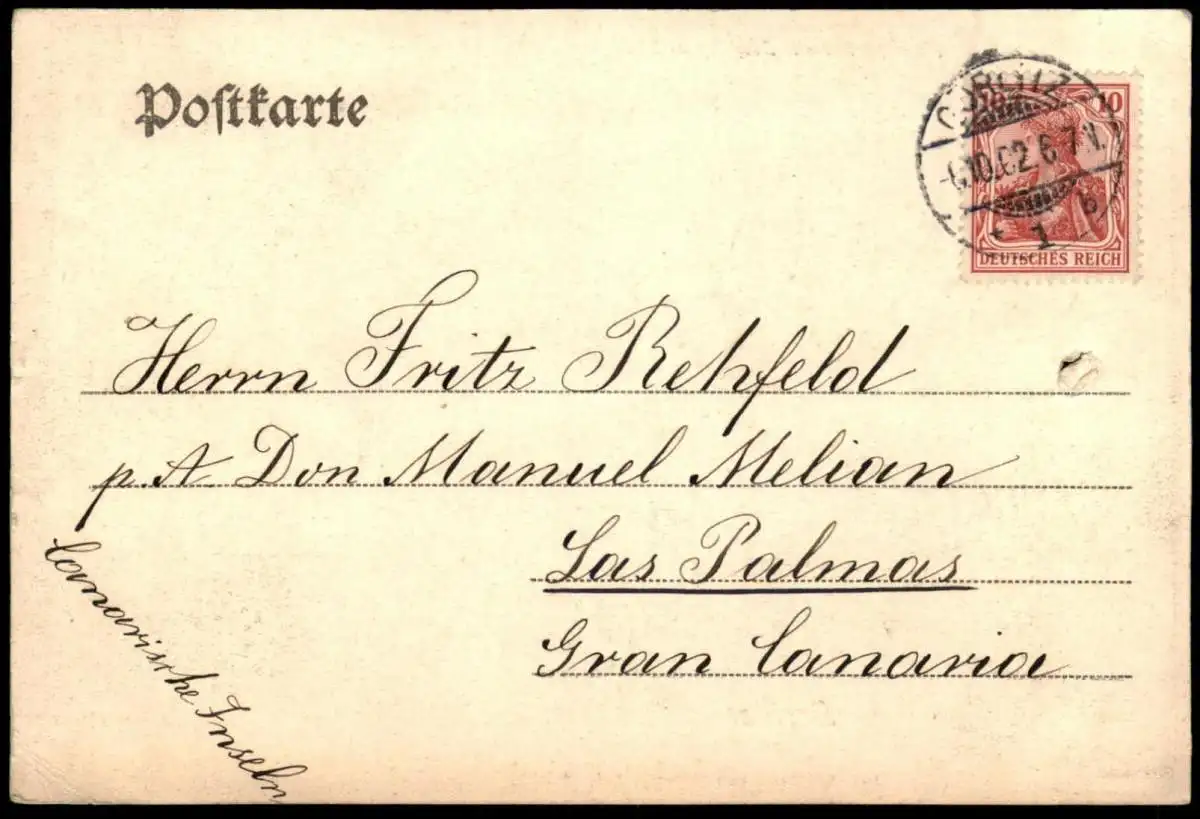 Postkarte
GÖRLITZ
10.02. 6-7 N.
* 1 b
10
DEUTSCHES REICH
Herrn Fritz Rehfeld
p. A. Don Manuel Melian
Las Palmas
Gran Canaria
Canarische Inseln